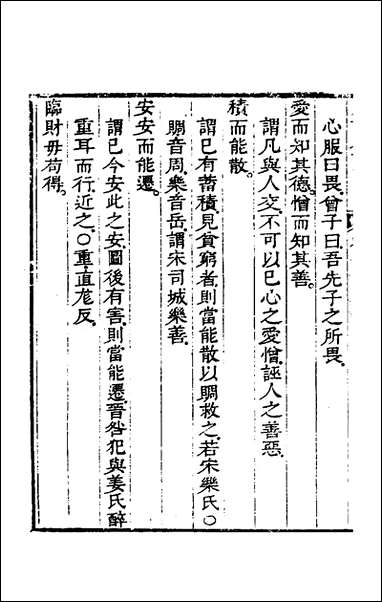 心服曰畏曾子曰吾先子之所畏。
愛而知其德。憎而知其善。
謂凡與人交不可以己心之愛憎誣人之善惡
積而能散。
謂已有蓄積見貧窮者則當能散以賙救之若宋樂氏〇
賙音周樂音岳謂宋司城樂善
安安而能遷。
謂已今安此之安圖後有害則當能遷晉咎犯與姜氏醉
重耳而行近之〇重直龙反
臨財毋苟得。